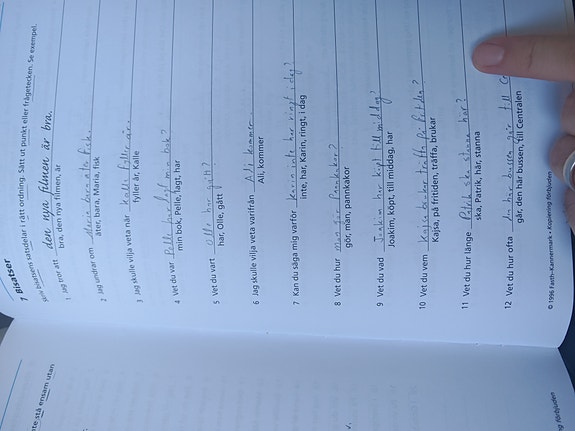 7 Bisatser
Skriv bisatsens satsdelar i rätt ordning. Sätt ut punkt eller frågetecken. Se exempel.
1 Jag tror att den nya filmen är bra.
bra, den nya filmen, är
2 Jag undrar om
äter, bara, Maria, fisk
3 Jag skulle vilja veta när Kalle fyller år.
fyller år, Kalle
4 Vet du var Pelle har lagt min bok?
min bok, Pelle, lagt, har
5 Vet du vart Olle har gått?
har, Olle, gått
6 Jag skulle vilja veta varifrån Ali kommer
Ali, kommer
7 Kan du säga mig varför Karin inte har ringt i dag?
inte, har, Karin, ringt, i dag
8 Vet du hur man gör pannkakor?
gör, man, pannkakor
9 Vet du vad Joakim har köpt till middag?
Joakim, köpt, till middag, har
10 Vet du vem Kajsa brukar träffa på fritiden?
Kajsa, på fritiden, träffa, brukar
11 Vet du hur länge Patrik ska stanna här?
ska, Patrik, här, stanna
12 Vet du hur ofta den här bussen går till
går, den här bussen, till Centralen
© 1996 Fasth-Kannermark • Kopiering förbjuden
stå ensam utan
förbjuden